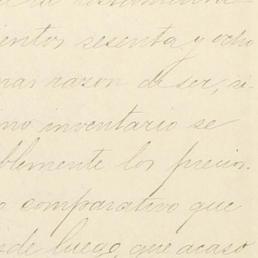 ientos sesenta y ocho
mas razon de ser, si-
mo inventario se
blemente los precios.
o comparativo que
nde luego, que acaso